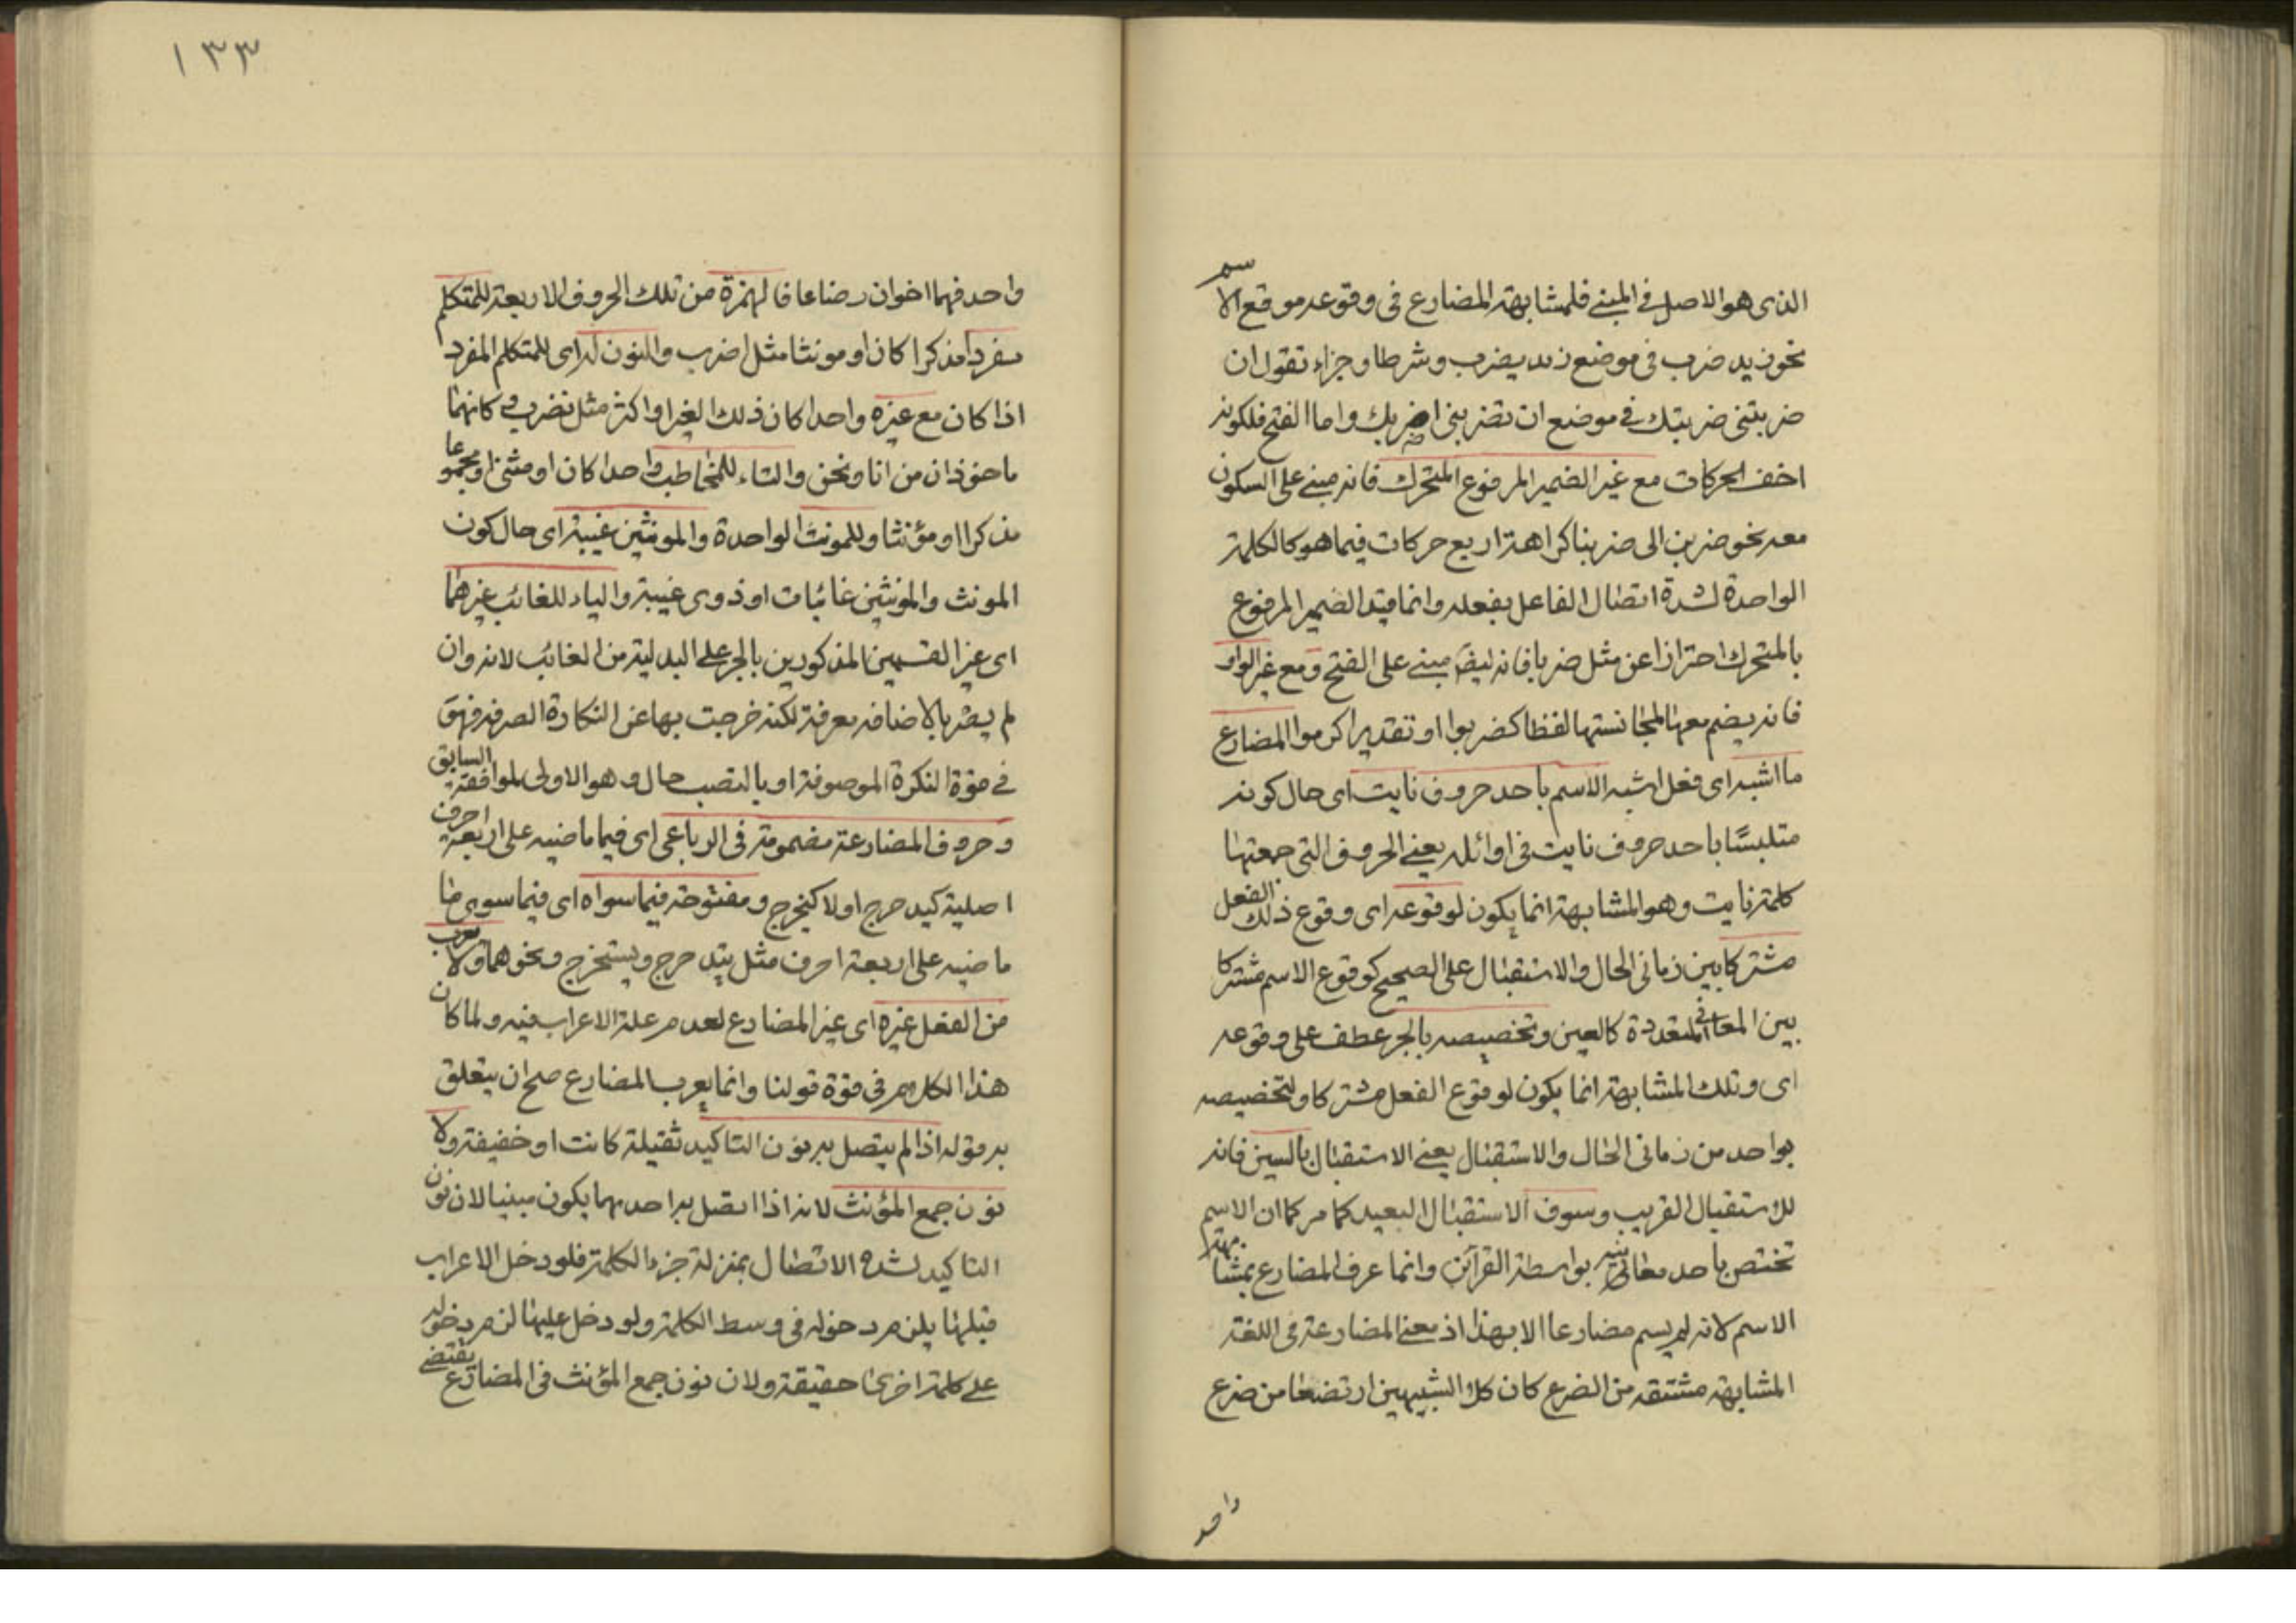 الذى هو الاصل فى المبنے فلمشابهته المضارع فى وقوعه موقع الاسم
نحو زيد ضرب فى موضع زيد يضرب وشرطا وجزاء تقول ان
ضربتنى ضربتك فے موضع ان تضربنى اضربك واما الفتح فلكونه
اخف الحركات مع غير الضمير المرفوع المتحرك فانه مبنے على السكون
معه نحو ضربن الى ضربنا كراهة اربع حركات فيما هو كالكلمة
الواحدة لشدة اتصال الفاعل بفعله وانما قيد الضمير المرفوع
بالمتحرك احترازا عن مثل ضربا فانه ايضً مبنے على الفتح ومع غير الواو
فانه يضم معها لمجانستها لفظا كضربوا او تقديرا كرموا المضارع
ما اشبه اى فعل اشبه الاسم باحد حروف نايت اى حال كونه
متلبسًا باحد حروف نايت فى اوائله يعنے الحروف التى جمعتها
كلمة نايت وهو المشابهة انما يكون لوقوعه اى وقوع ذلك الفعل
مشتركا بين زمانى الحال والاستقبال على الصحيح كوقوع الاسم مشتركا
بين المعانى المتعددة كالعين وتخصيصه بالجر عطف على وقوعه
اى وتلك المشابهة انما يكون لوقوع الفعل مشتركا ولتخصيصه
بواحد من زمانى الحال والاستقبال يعنے الاستقبال بالسين فانه
للاستقبال القريب وسوف الاستقبال البعيد كما مر كما ان الاسم
تختص باحد معانيه بواسطة القرآئن وانما عرف المضارع بمشابهة
الاسم لانه لم يسم مضارعا الا بهذا اذ معنے المضارعة فى اللغة
المشابهة مشتقه من الضرع كان كلا الشبيهين ارتضعا من ضرع
واحد
١٣٣
واحد فهما اخوان رضاعا فالهمزة من تلك الحروف الاربعة للمتكلم
مفردا مذكرا كان او مونثا مثل اضرب والنون له اى للمتكلم المفرد
اذا كان مع غيره واحدا كان ذلك الغير او اكثر مثل نضرب وكانهما
ماخوذان من انا ونحن والتاء للمخاطب واحدا كان او مثنى او مجموعا
مذكرا او مؤنثا وللمونث الواحدة والمونثين غيبة اى حال كون
المونث والمونثين غائبات او ذوى غيبة والياء للغائب غيرهما
اى غير القسمين المذكورين بالجر على البدلية من الغائب لانه وان
لم يصر بالاضافه معرفة لكنه خرجت بها عن النكارة الصرفة فهو
فے قوة النكرة الموصوفة او بالنصب حال وهو الاولى لموافقة السابق
وحروف المضارعة مضمومة فى الرباعى اى فيما ماضيه على اربعة احرف
اصلية كيدحرج اولا كيخرج ومفتوحة فيما سواه اى فيما سوى ما
ماضيه على اربعة احرف مثل يتدحرج ويستخرج ونحوهما ولا يعرب
من الفعل غيره اى غير المضارع لعدم علة الاعراب فيه ولما كان
هذا الكلام فى قوة قولنا وانما يعرب المضارع صح ان يتعلق
به قوله اذا لم يتصل به نون التاكيد ثقيلة كانت او خفيفة ولا
نون جمع المؤنث لانه اذا اتصل به احدهما يكون مبنيا لان نون
التاكيد لشدة الاتصال بمنزلة جزء الكلمة فلو دخل الاعراب
قبلها يلزم دخوله فى وسط الكلمة ولو دخل عليها لزم دخوله
علے كلمة اخرى حقيقة ولان نون جمع المؤنث فى المضارع يقتضے